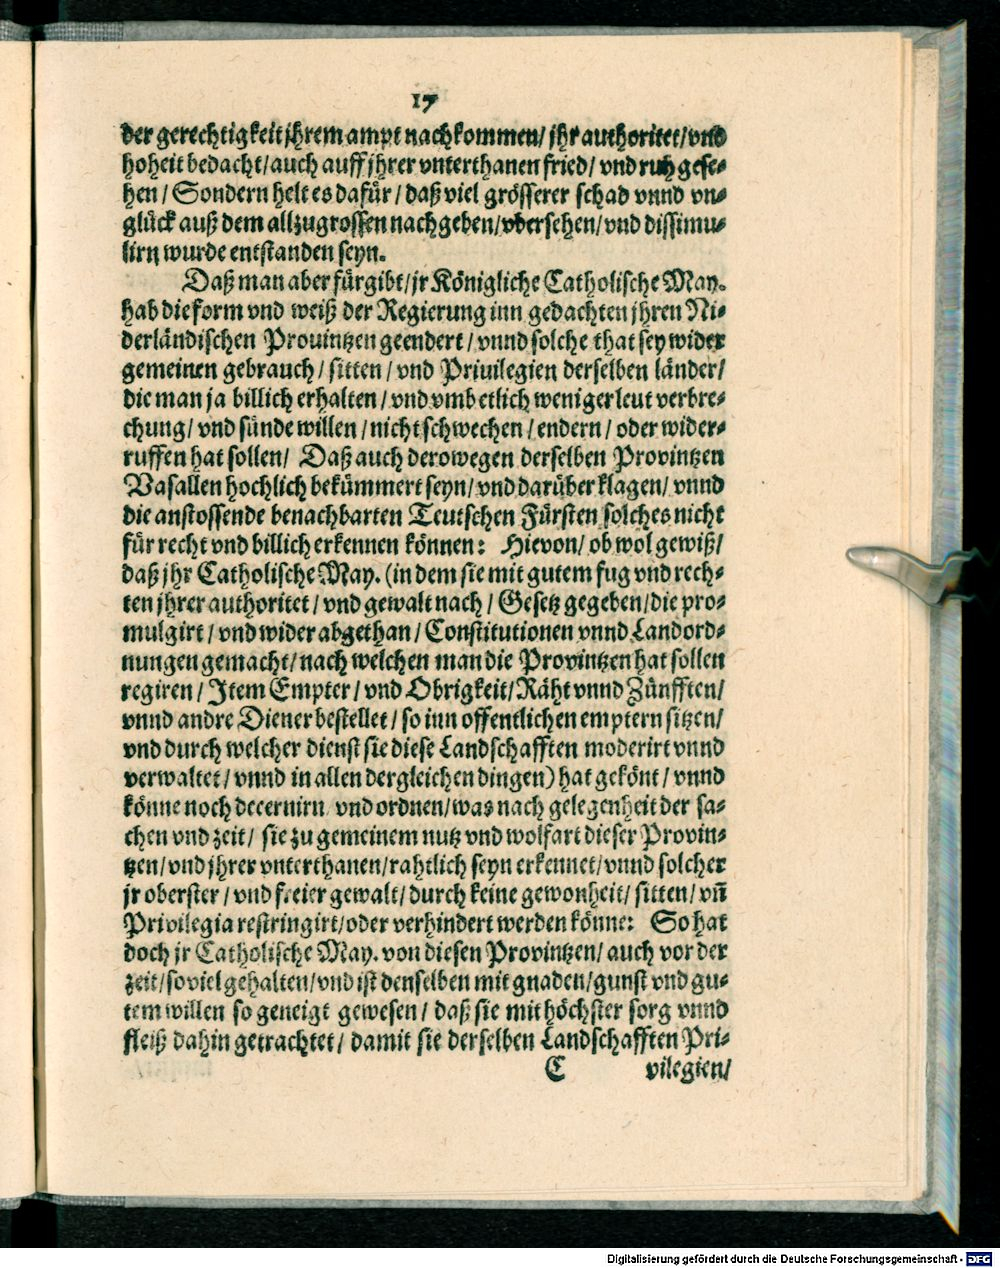 17
der gerechtigkeit jhrem ampt nachkommen/ jhr authoritet/ vnd
hoheit bedacht/ auch auff jhrer vnterthanen fried/ vnd ruh gese-
hen/ Sondern helt es dafür/ daß viel grösserer schad vnnd vn-
glück auß dem allzugrossen nachgeben/ vbersehen/ vnd dissimu-
lirn wurde entstanden seyn.
Daß man aber fürgibt/ jr Königliche Catholische May.
hab die form vnd weiß der Regierung inn gedachten jhren Ni-
derländischen Prouintzen geendert/ vnnd solche that sey wider
gemeinen gebrauch/ sitten/ vnd Priuilegien derselben länder/
die man ja billich erhalten/ vnd vmb etlich weniger leut verbre-
chung/ vnd sünde willen/ nicht schwechen/ endern/ oder wider-
ruffen hat sollen/ Daß auch derowegen derselben Provintzen
Vasallen hochlich bekümmert seyn/ vnd darüber klagen/ vnnd
die anstossende benachbarten Teutschen Fürsten solches nicht
für recht vnd billich erkennen können: Hievon/ ob wol gewiß/
daß jhr Catholische May. (in dem sie mit gutem fug vnd rech-
ten jhrer authoritet/ vnd gewalt nach/ Gesetz gegeben/ die pro-
mulgirt/ vnd wider abgethan/ Constitutionen vnnd Landord-
nungen gemacht/ nach welchen man die Provintzen hat sollen
regiren/ Item Empter/ vnd Obrigkeit/ Räht vnnd Zünfften/
vnnd andre Diener bestellet/ so inn offentlichen emptern sitzen/
vnd durch welcher dienst sie diese Landschafften moderirt vnnd
verwaltet/ vnnd in allen dergleichen dingen) hat gekönt/ vnnd
könne noch decernirn vnd ordnen/ was nach gelegenheit der sa-
chen vnd zeit/ sie zu gemeinem nutz vnd wolfart dieser Provin-
tzen/ vnd jhrer vnterthanen/ rahtlich seyn erkennet/ vnnd solcher
jr oberster/ vnd freier gewalt/ durch keine gewonheit/ sitten/ vn̄
Privilegia restringirt/ oder verhindert werden könne: So hat
doch jr Catholische May. von diesen Provintzen/ auch vor der
zeit/ so viel gehalten/ vnd ist denselben mit gnaden/ gunst vnd gu-
tem willen so geneigt gewesen/ daß sie mit höchster sorg vnnd
fleiß dahin getrachtet/ damit sie derselben Landschafften Pri-
C vilegien/
Digitalisierung gefördert durch die Deutsche Forschungsgemeinschaft - DFG